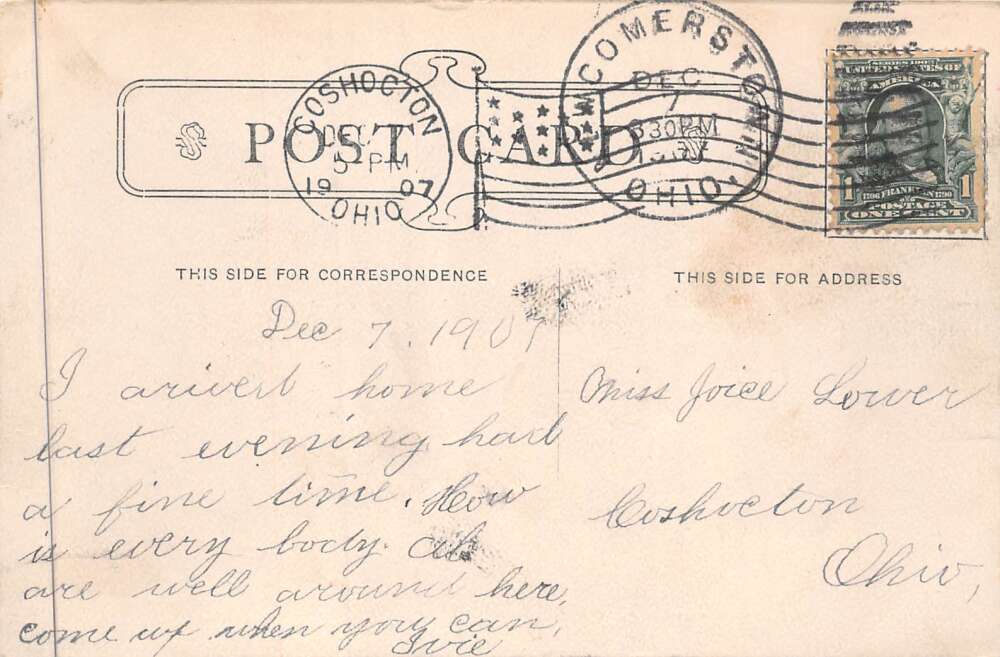 COSHOCTON
DEC 7
5 PM
1907
OHIO
NEWCOMERSTOWN
DEC
7
630PM
1907
OHIO.
SERIES 1902
UNITED STATES OF
AMERICA
1 1790 FRANKLIN 1790 1
POSTAGE
ONE CENT
POST CARD
THIS SIDE FOR CORRESPONDENCE
THIS SIDE FOR ADDRESS
Dec 7, 1907
I arivert home
last evening had
a fine time. How
is every body. all
are well around here,
come up when you can,
Ivie
Miss Joice Lower
Coshocton
Ohio,